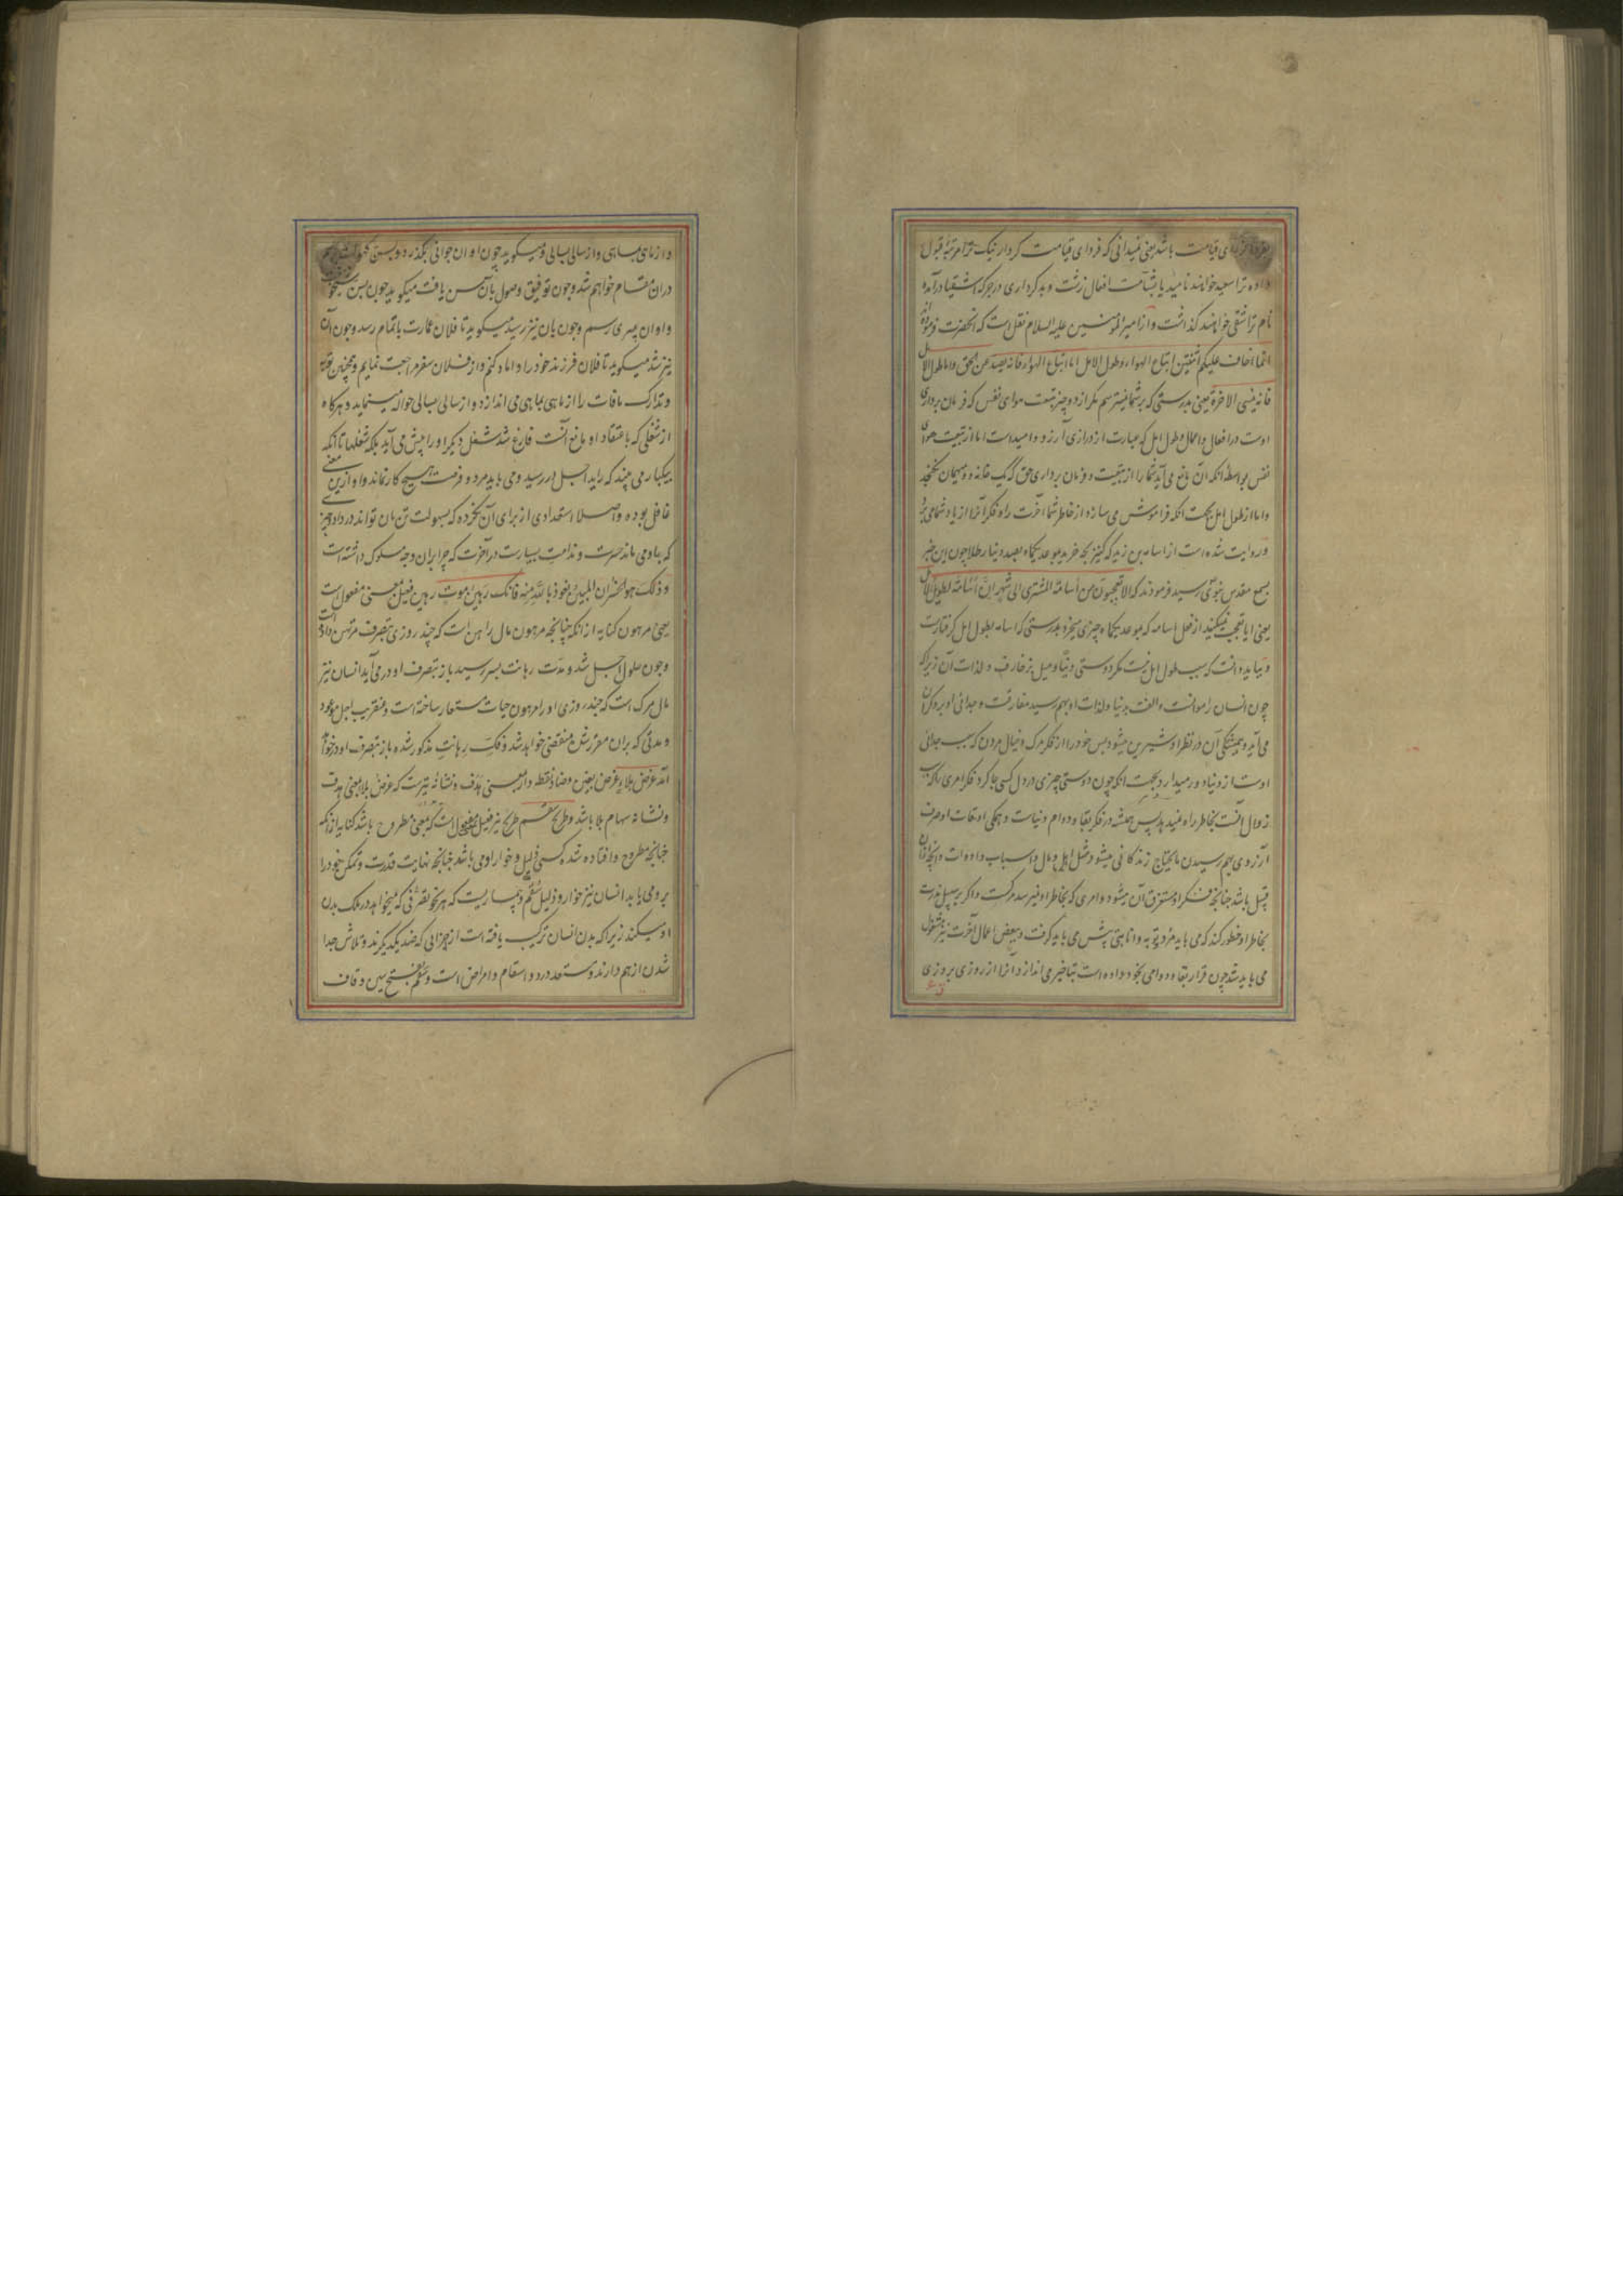 فردای قیامت باشد یعنی نمیدانی که فردای قیامت کردار نیک ترا مرتبهٔ قبول
داده ترا سعید خوانند نامید یا بشآمت افعال زشت و بدکرداری در جرکه اشقیا درآمده
نام ترا شقی خواهند گذاشت و از امیرالمومنین علیه السلام نقل است که آنحضرت فرموده
انما اخاف علیکم اثنتین اتباع الهواء وطول الامل اما اتباع الهواء فانه یصد عن الحق واما طول الامل
فانه ینسی الاخرة یعنی بدرستی که بر شما نمیترسم مگر از دو چیز متابعت هوای نفس که فرمان برداری
اوست در افعال و اعمال و طول امل که عبارت از درازی آرزو و امیدست اما از تبعیت هوای
نفس بواسطه آنکه آن مانع می‌آید شما را از تبعیت و فرمان برداری حق که یک خانه دو میهمان نگنجد
و اما از طول امل بجهت آنکه فراموش می سازد از خاطر شما آخرت را و فکر آنرا از یاد شما می برد
و روایت شده است از اسامه بن زید که کنیز بچه خرید بموعد یکماه بصد دینار طلا چون این خبر
بسمع مقدس نبوی رسید فرمودند که الا تعجبون من اسامة المشتری الی شهر ان اسامة لطویل الامل
یعنی ایا تعجب نمیکنید از فعل اسامه که بموعد یکماه چیزی میخرد بدرستی که اسامه بطول امل گرفتارست
و بباید دانست که سبب طول امل نیست مگر دوستی دنیا و میل بزخارف و لذات آن زیرا که
چون انسان را موانست و الفت بدنیا و لذات او بهم رسید مفارقت و جدائی او برو گران
می آید و همیشگی آن در نظر او شیرین میشود پس خود را از فکر مرگ و خیال مردن که سبب جدائی
اوست از دنیا دور میدارد بجهت آنکه چون دوستی چیزی در دل کسی جا کرد فکر امری را که سبب
زوال آنست بخاطر راه نمیدهد پس همیشه در فکر بقا و دوام دنیاست و همگی اوقات او صرف
آرزوی بهم رسیدن مایحتاج زندگانی میشود مثل اهل و مال و اسباب و ادوات و آنچه ازین
قبیل باشد چنانچه فکر او مستغرق آن میشود و امری که بخاطر او نمیرسد مرگست و اگر بر سبیل ندرت
بخاطر او خطور کند که می باید مرد و توبه و انابتی پیش می باید گرفت و ببعض اعمال آخرت نیز مشغول
می باید شد چون قرار بقا و دوامی بخود داده است بتاخیر می اندازد و آنرا از روزی بروزی
و از ماهی بماهی و از سالی بسالی و میگوید چون اوان جوانی بگذرد و بسن
دران هنگام خواهم شد و چون توفیق وصول بآن سن یافت میگوید چون بسن
و اوان پیری رسم و چون بان نیز رسید میگوید تا فلان عمارت باتمام رسد و چون آن
نیز شد میگوید تا فلان فرزند خود را داماد کنم و از فلان سفر مراجعت نمایم و همچنین توبه
و تدارک مافات را از ماهی بماهی می اندازد و از سالی بسالی حواله مینماید و هرگاه
از شغلی که باعتقاد او مانع آنست فارغ شد شغل دیگر او را پیش می آید بلکه شغلها تا آنکه
بیکبار می بیند که راید اجل در رسید و می باید مرد و فرصت هیچ کار نماند و او ازین معنی
غافل بوده و اصلا استعدادی از برای آن نکرده که بسهولت تن بان تواند در داد چیزی
که باو می ماند حسرت و ندامت بسیارست در آخرت که چرا بران وجه سلوک داشته است
وذلک هو الخسران المبین نعوذ بالله منه فانک رهین موت رهین فعیل بمعنی مفعول است
یعنی مرهون کنایه از آنکه چنانچه مرهون مال راهن است که چند روزی بتصرف مرتهن داده است
و چون حلول اجل شد و مدت رهانت بسر رسید باز بتصرف او در می آید انسان نیز
مال مرگ است که چند روزی او را مرهون حیات مستعار ساخته است و عنقریب اجل موعود
و مدتی که بران مقررشده منقضی خواهد شد و فک رهانت مذکور شده باز بتصرف او در خواهد
آمد غرض بلاء غرض بغین و ضاد نقطه دار بمعنی هدف و نشانهٔ تیرست که غرض بلا بمعنی هدف
و نشانه سهام بلا باشد و طریح سقم طریح نیز فعیل مفعول است که بمعنی مطروح باشد کنایه از آنکه
چنانچه مطروح و افتاده شده کسی ذلیل و خوار او می باشد چنانچه نهایت قدرت و تمکن خود را
برو می یابد انسان نیز خوار و ذلیل سقم و بیماریست که هر نحو تصرفی که میخواهد در ملک بدن
او میکند زیرا که بدن انسان ترکیب یافته است از اجزائی که ضد یکدیگرند و تلاش جدا
شدن از هم دارند و مستعد درد و اسقام و امراض است و سقم بفتح سین و قاف